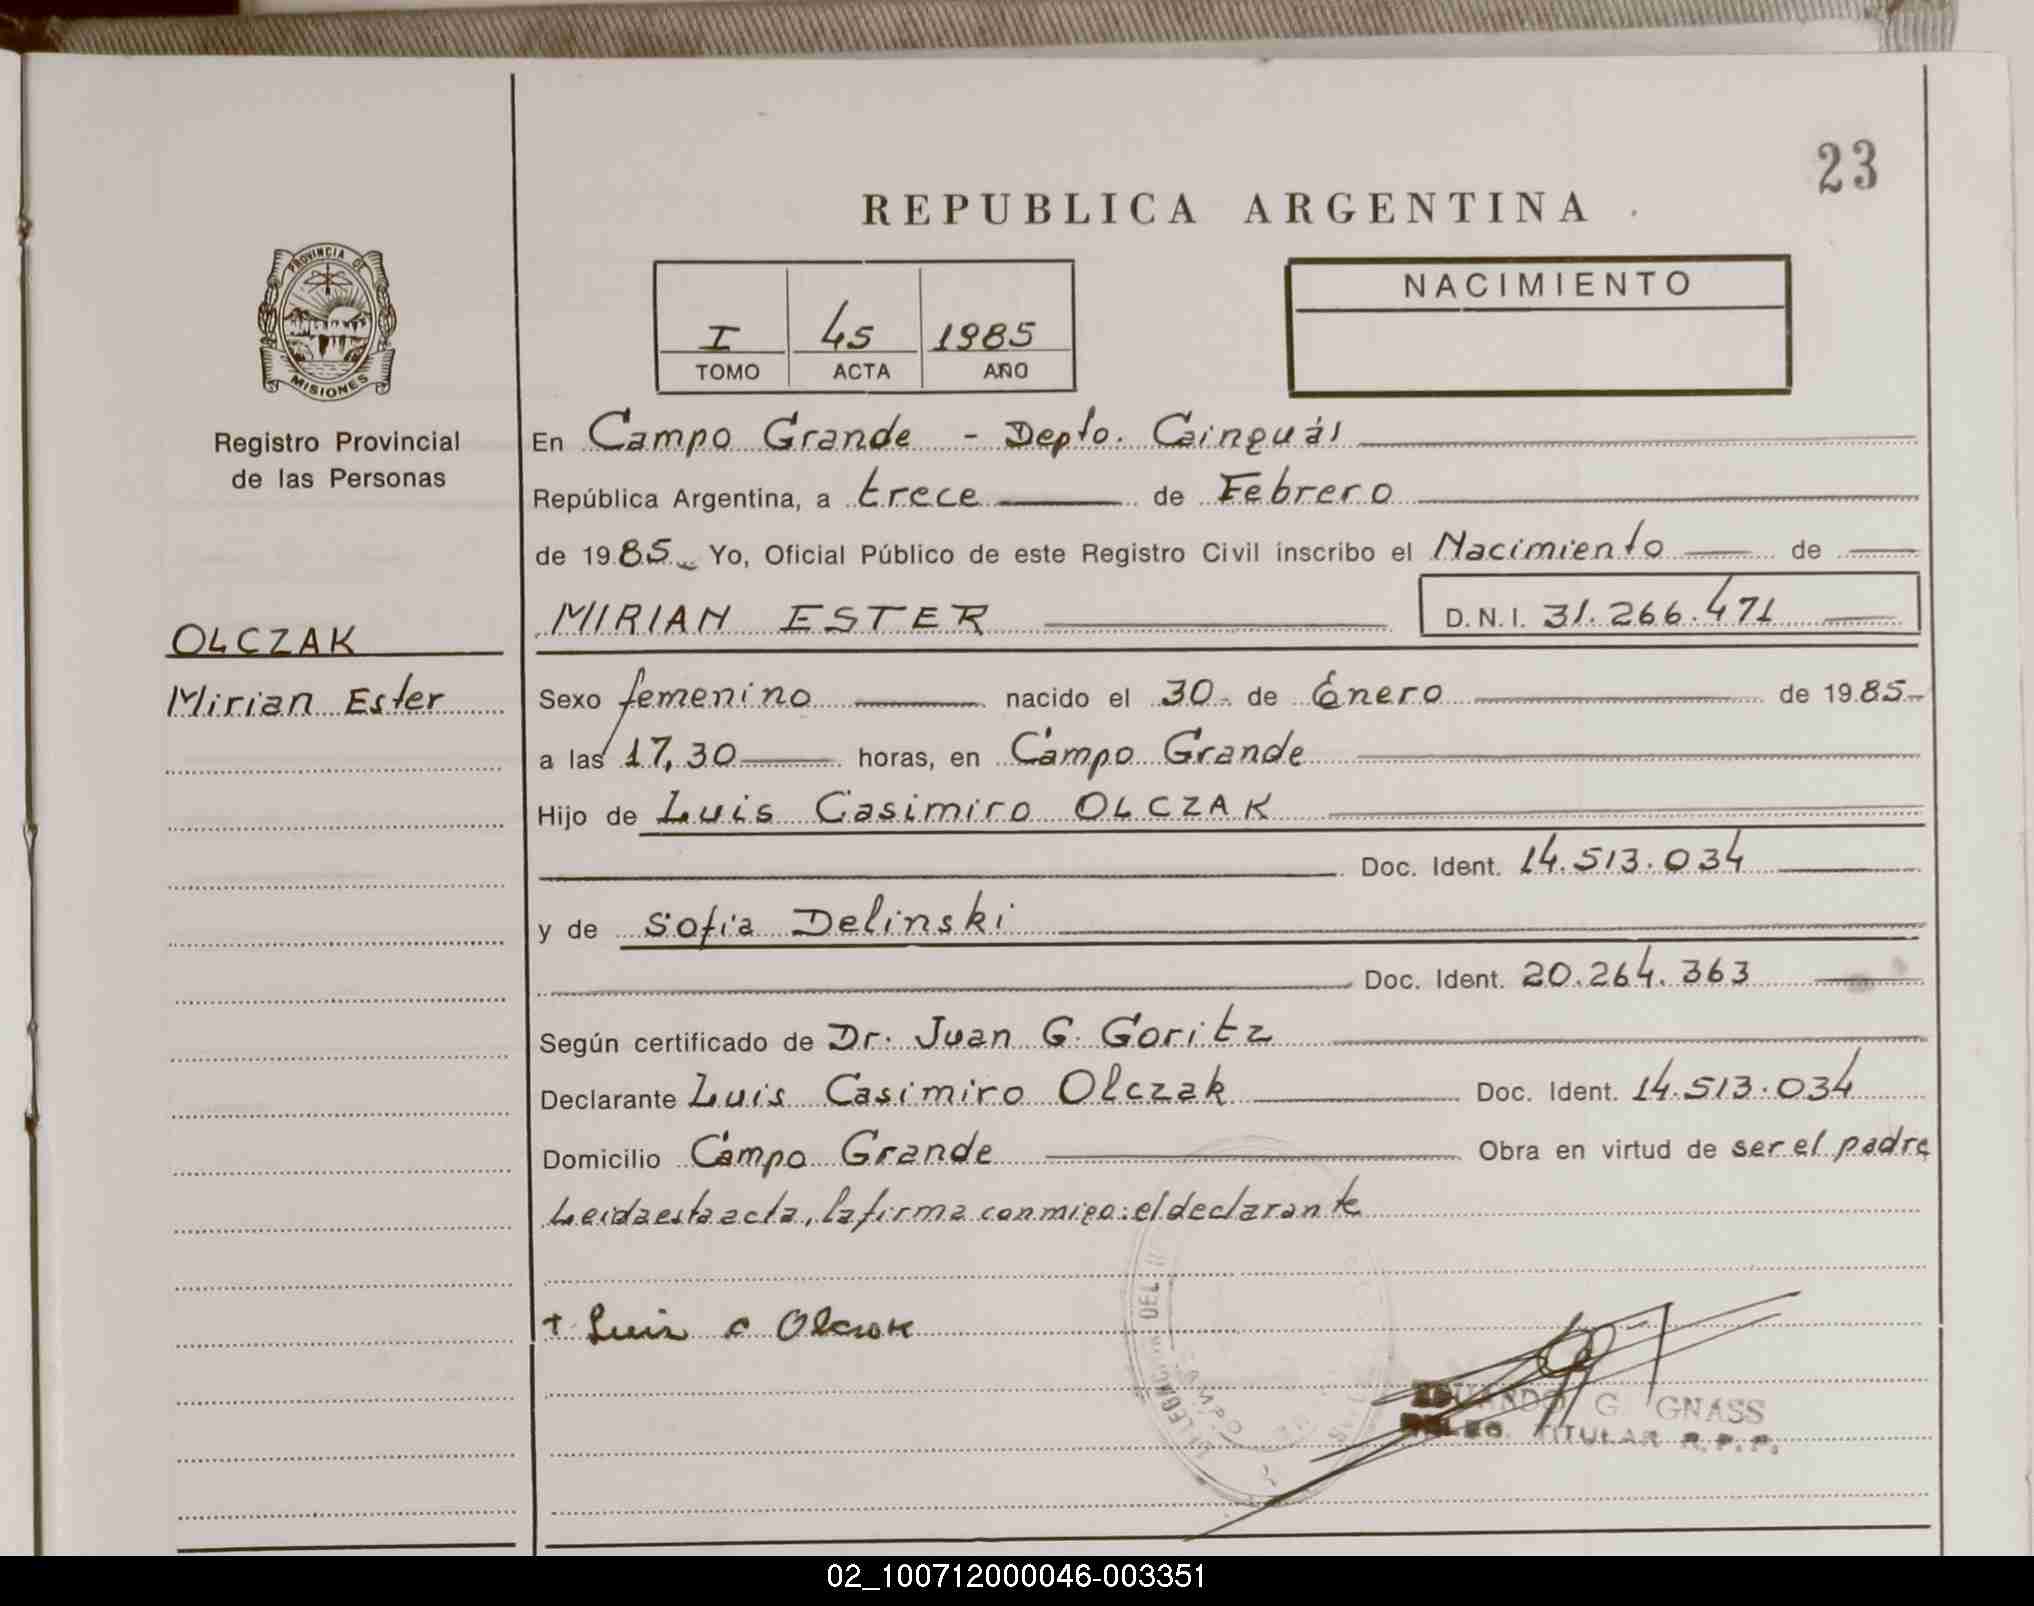 23
REPUBLICA ARGENTINA
PROVINCIA DE
MISIONES
Registro Provincial
de las Personas
I 45 1985
TOMO ACTA AÑO
NACIMIENTO
En Campo Grande - Depto. Cainguás
República Argentina, a trece de Febrero
de 1985 Yo, Oficial Público de este Registro Civil inscribo el Nacimiento de
MIRIAN ESTER D.N.I. 31.266.471
OLCZAK
Mirian Ester
Sexo femenino nacido el 30 de Enero de 1985
a las 17,30 horas, en Campo Grande
Hijo de Luis Casimiro OLCZAK
Doc. Ident. 14.513.034
y de Sofia Delinski
Doc. Ident. 20.264.363
Según certificado de Dr. Juan G. Goritz
Declarante Luis Casimiro Olczak Doc. Ident. 14.513.034
Domicilio Campo Grande Obra en virtud de ser el padre
Leida esta acta, la firma conmigo: el declarante
+ Luis C Olczak
DEL
EDUARDO G. GNASS
DELEG. TITULAR R.P.P.
02_100712000046-003351